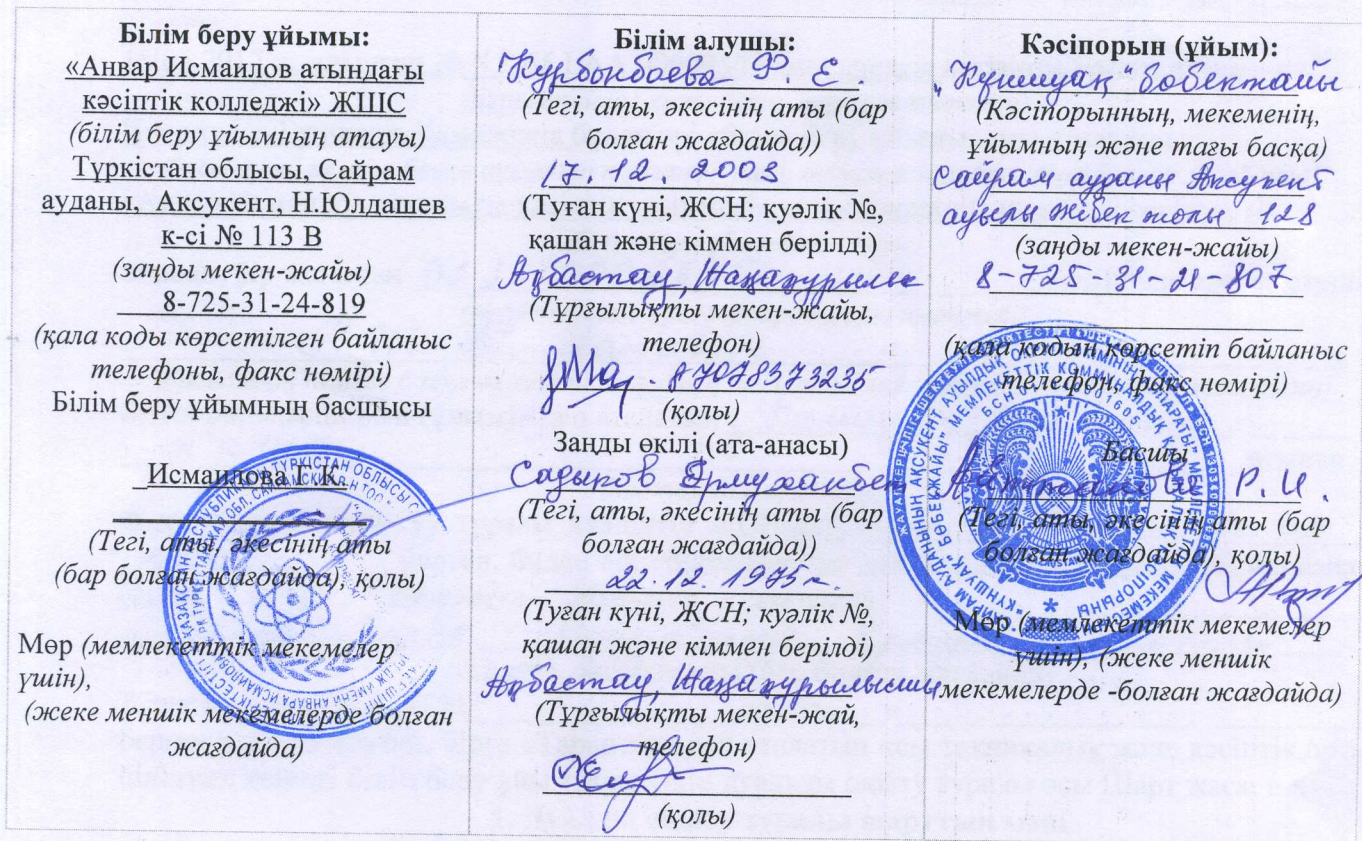 Білім беру ұйымы:
«Анвар Исмаилов атындағы
кәсіптік колледжі» ЖШС
(білім беру ұйымның атауы)
Түркістан облысы, Сайрам
ауданы, Аксукент, Н.Юлдашев
к-сі № 113 В
(заңды мекен-жайы)
8-725-31-24-819
(қала коды көрсетілген байланыс
телефоны, факс нөмірі)
Білім беру ұйымның басшысы
Исмаилова Г.К.
(Тегі, аты, әкесінің аты
(бар болған жағдайда), қолы)
Мөр (мемлекеттік мекемелер
үшін),
(жеке меншік мекемелерде болған
жағдайда)
Білім алушы:
Курбонбаева Ф. Е.
(Тегі, аты, әкесінің аты (бар
болған жағдайда))
17.12.2003
(Туған күні, ЖСН; куәлік №,
қашан және кіммен берілді)
Ақбастау, Жаңақурылыс
(Тұрғылықты мекен-жайы,
телефон)
87078373235
(қолы)
Заңды өкілі (ата-анасы)
Садыков Ермуханбет
(Тегі, аты, әкесінің аты (бар
болған жағдайда))
22.12.1975
(Туған күні, ЖСН; куәлік №,
қашан және кіммен берілді)
Ақбастау,
(Тұрғылықты мекен-жай,
телефон)
(қолы)
Кәсіпорын (ұйым):
"Күншуақ бөбекжайы
(Кәсіпорынның, мекеменің,
ұйымның және тағы басқа)
Сайрам ауданы Аксукент
ауылы Жібек жолы 128
(заңды мекен-жайы)
8-725-31-21-807
(қала кодын көрсетіп байланыс
телефон, факс нөмірі)
Басшы
Р. И.
(Тегі, аты, әкесінің аты (бар
болған жағдайда), қолы)
Мөр (мемлекеттік мекемелер
үшін), (жеке меншік
мекемелерде -болған жағдайда)